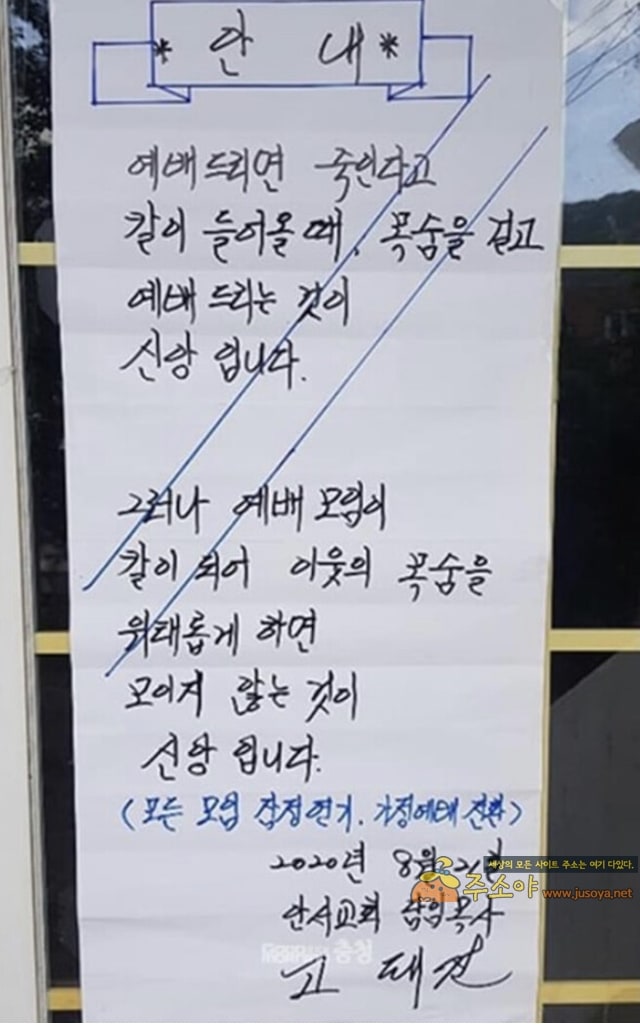 * 안 내 *
예배드리면 죽인다고
칼이 들어올 때, 목숨을 걸고
예배드리는 것이
신앙 입니다.
그러나 예배 모임이
칼이 되어 이웃의 목숨을
위태롭게 하면
모이지 않는 것이
신앙 입니다.
(모든 모임 잠정연기. 가정예배 전환)
2020년 8월 21일
세상의 모든 사이트 주소는 여기 다있다.
주소야 www.jusoya.net
안서교회 담임목사
충청
고 태진